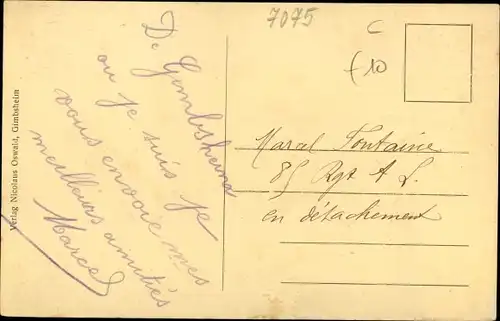 7075
C
f 10
De Gimbsheim
ou je suis je
vous envoie mes
meilleurs amitiés
Marcel
Marcel Fontaine
85 Rgt A L.
en détachement
Verlag Nicolaus Oswald, Gimbsheim